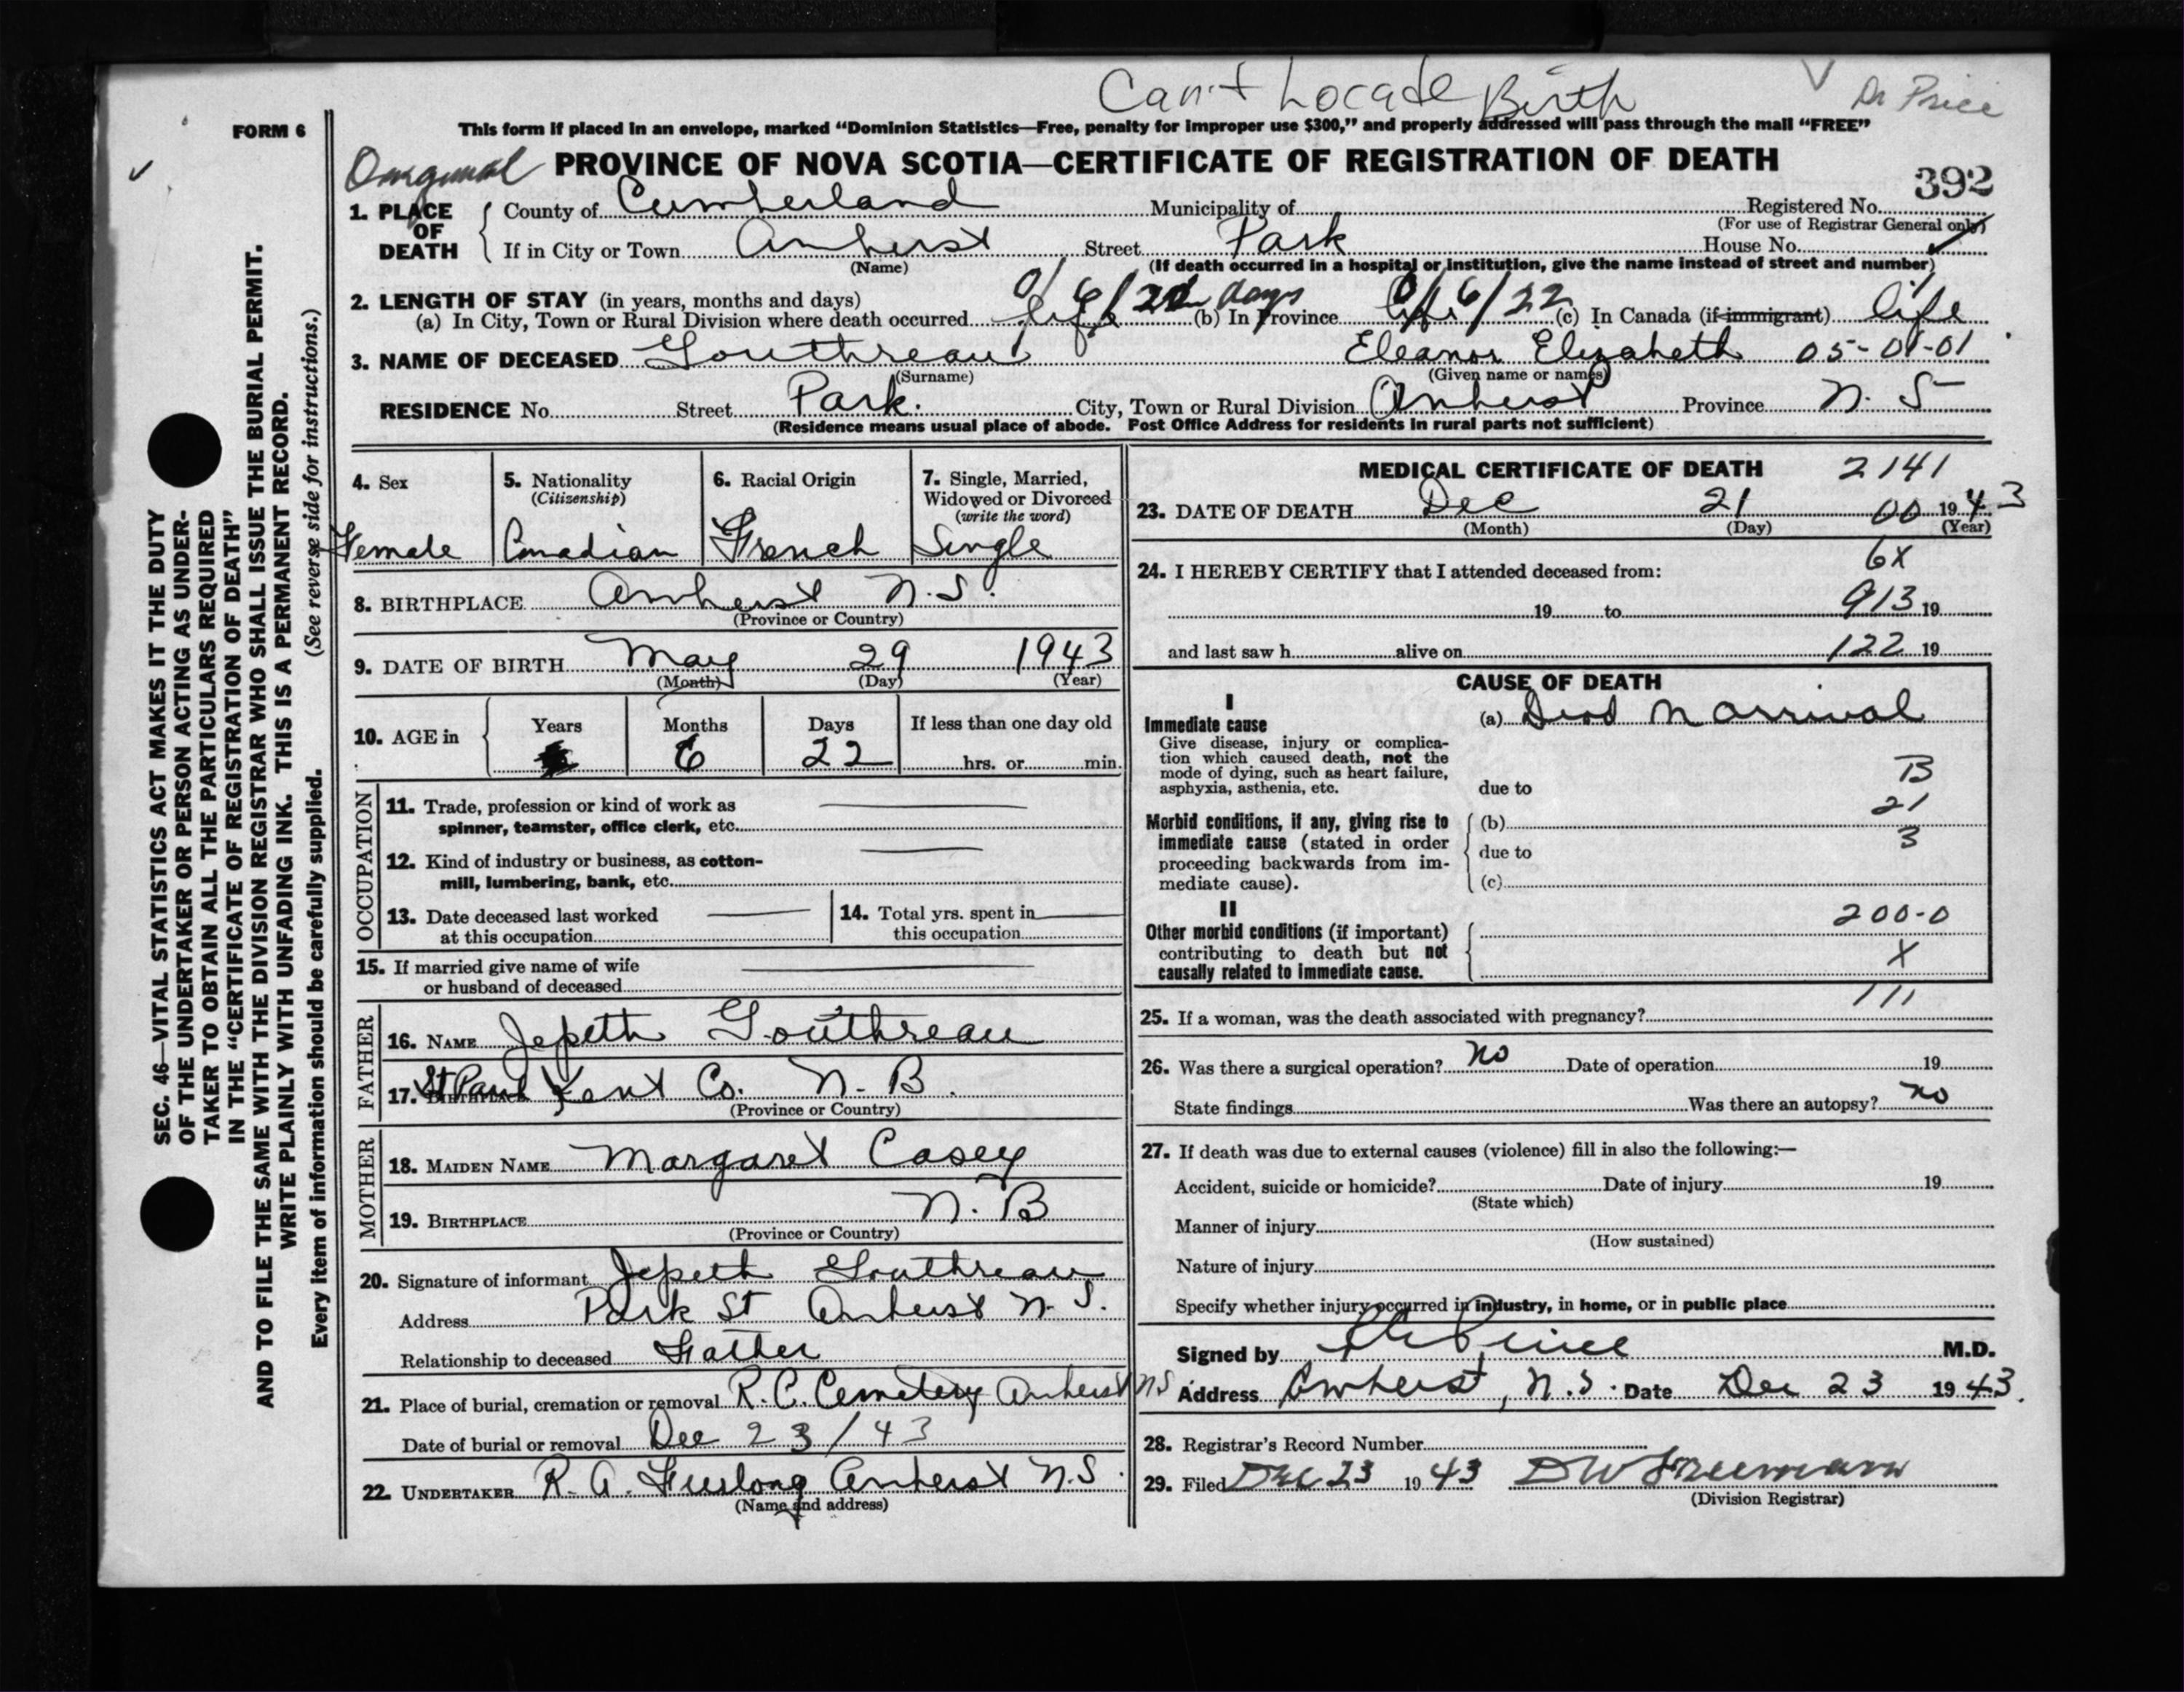 Can't Locate Birth
Dr Price
FORM 6
This form if placed in an envelope, marked "Dominion Statistics—Free, penalty for improper use $300," and properly addressed will pass through the mail "FREE"
PROVINCE OF NOVA SCOTIA—CERTIFICATE OF REGISTRATION OF DEATH
392
1. PLACE OF DEATH
County of Cumberland Municipality of Registered No.
(For use of Registrar General only)
If in City or Town Amherst Street Park House No.
(Name) (If death occurred in a hospital or institution, give the name instead of street and number)
2. LENGTH OF STAY (in years, months and days)
(a) In City, Town or Rural Division where death occurred life 0/6/22 days (b) In Province life 0/6/22 (c) In Canada (if immigrant) life
3. NAME OF DECEASED Gouthreau Eleanor Elizabeth 05-01-01
(Surname) (Given name or names)
RESIDENCE No. Street Park. City, Town or Rural Division Amherst Province N. S
(Residence means usual place of abode. Post Office Address for residents in rural parts not sufficient)
4. Sex
Female
5. Nationality
(Citizenship)
Canadian
6. Racial Origin
French
7. Single, Married,
Widowed or Divorced
(write the word)
Single
8. BIRTHPLACE Amherst N.S.
(Province or Country)
9. DATE OF BIRTH May 29 1943
(Month) (Day) (Year)
10. AGE in
Years Months Days If less than one day old
6 22 hrs. or min.
OCCUPATION
11. Trade, profession or kind of work as
spinner, teamster, office clerk, etc.
12. Kind of industry or business, as cotton-
mill, lumbering, bank, etc.
13. Date deceased last worked
at this occupation
14. Total yrs. spent in
this occupation
15. If married give name of wife
or husband of deceased
FATHER
16. NAME Jepeth Gouthreau
17. BIRTHPLACE St Paul Kent Co. N. B.
(Province or Country)
MOTHER
18. MAIDEN NAME Margaret Casey
19. BIRTHPLACE N. B
(Province or Country)
20. Signature of informant Jepeth Gouthreau
Address Park St Amherst N. S.
Relationship to deceased Father
21. Place of burial, cremation or removal R. C. Cemetery Amherst NS
Date of burial or removal Dec 23/43
22. UNDERTAKER R. A. Furlong Amherst N.S.
(Name and address)
MEDICAL CERTIFICATE OF DEATH 2141
23. DATE OF DEATH Dec 21 00 1943
(Month) (Day) (Year)
24. I HEREBY CERTIFY that I attended deceased from: 6X
19 to 913 19
and last saw h alive on 122 19
CAUSE OF DEATH
I
Immediate cause
Give disease, injury or complica-
tion which caused death, not the
mode of dying, such as heart failure,
asphyxia, asthenia, etc.
(a) Dead n arrival
B
due to
21
Morbid conditions, if any, giving rise to
immediate cause (stated in order
proceeding backwards from im-
mediate cause).
(b)
3
due to
(c)
II
Other morbid conditions (if important)
contributing to death but not
causally related to immediate cause.
200-0
X
111
25. If a woman, was the death associated with pregnancy?
26. Was there a surgical operation? no Date of operation 19
State findings Was there an autopsy? no
27. If death was due to external causes (violence) fill in also the following:—
Accident, suicide or homicide? Date of injury 19
(State which)
Manner of injury
(How sustained)
Nature of injury
Specify whether injury occurred in industry, in home, or in public place
Signed by Price M.D.
Address Amherst, N.S. Date Dec 23 1943.
28. Registrar's Record Number
29. Filed DEC 23 1943 DW Freeman
(Division Registrar)
SEC. 46—VITAL STATISTICS ACT MAKES IT THE DUTY
OF THE UNDERTAKER OR PERSON ACTING AS UNDER-
TAKER TO OBTAIN ALL THE PARTICULARS REQUIRED
IN THE "CERTIFICATE OF REGISTRATION OF DEATH"
AND TO FILE THE SAME WITH THE DIVISION REGISTRAR WHO SHALL ISSUE THE BURIAL PERMIT.
WRITE PLAINLY WITH UNFADING INK. THIS IS A PERMANENT RECORD.
Every item of information should be carefully supplied. (See reverse side for instructions.)